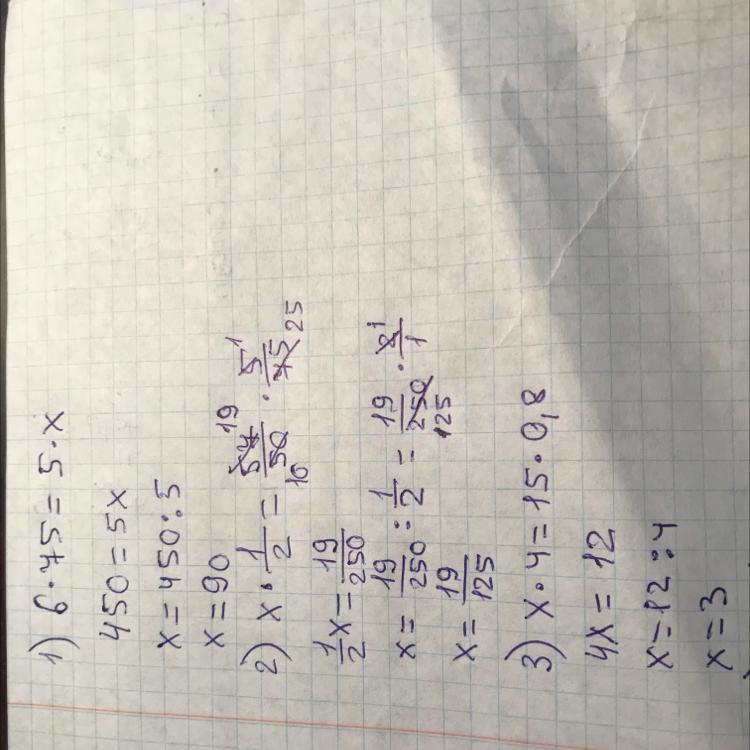 1) 6·75=5·x
450=5x
x=450:5
x=90
2) x·1/2=57 19/50 10·5 1/75 25
1/2x=19/250
x=19/250:1/2=19/250 125·2 1/1
x=19/125
3) x·4=15·0,8
4x=12
x=12:4
x=3